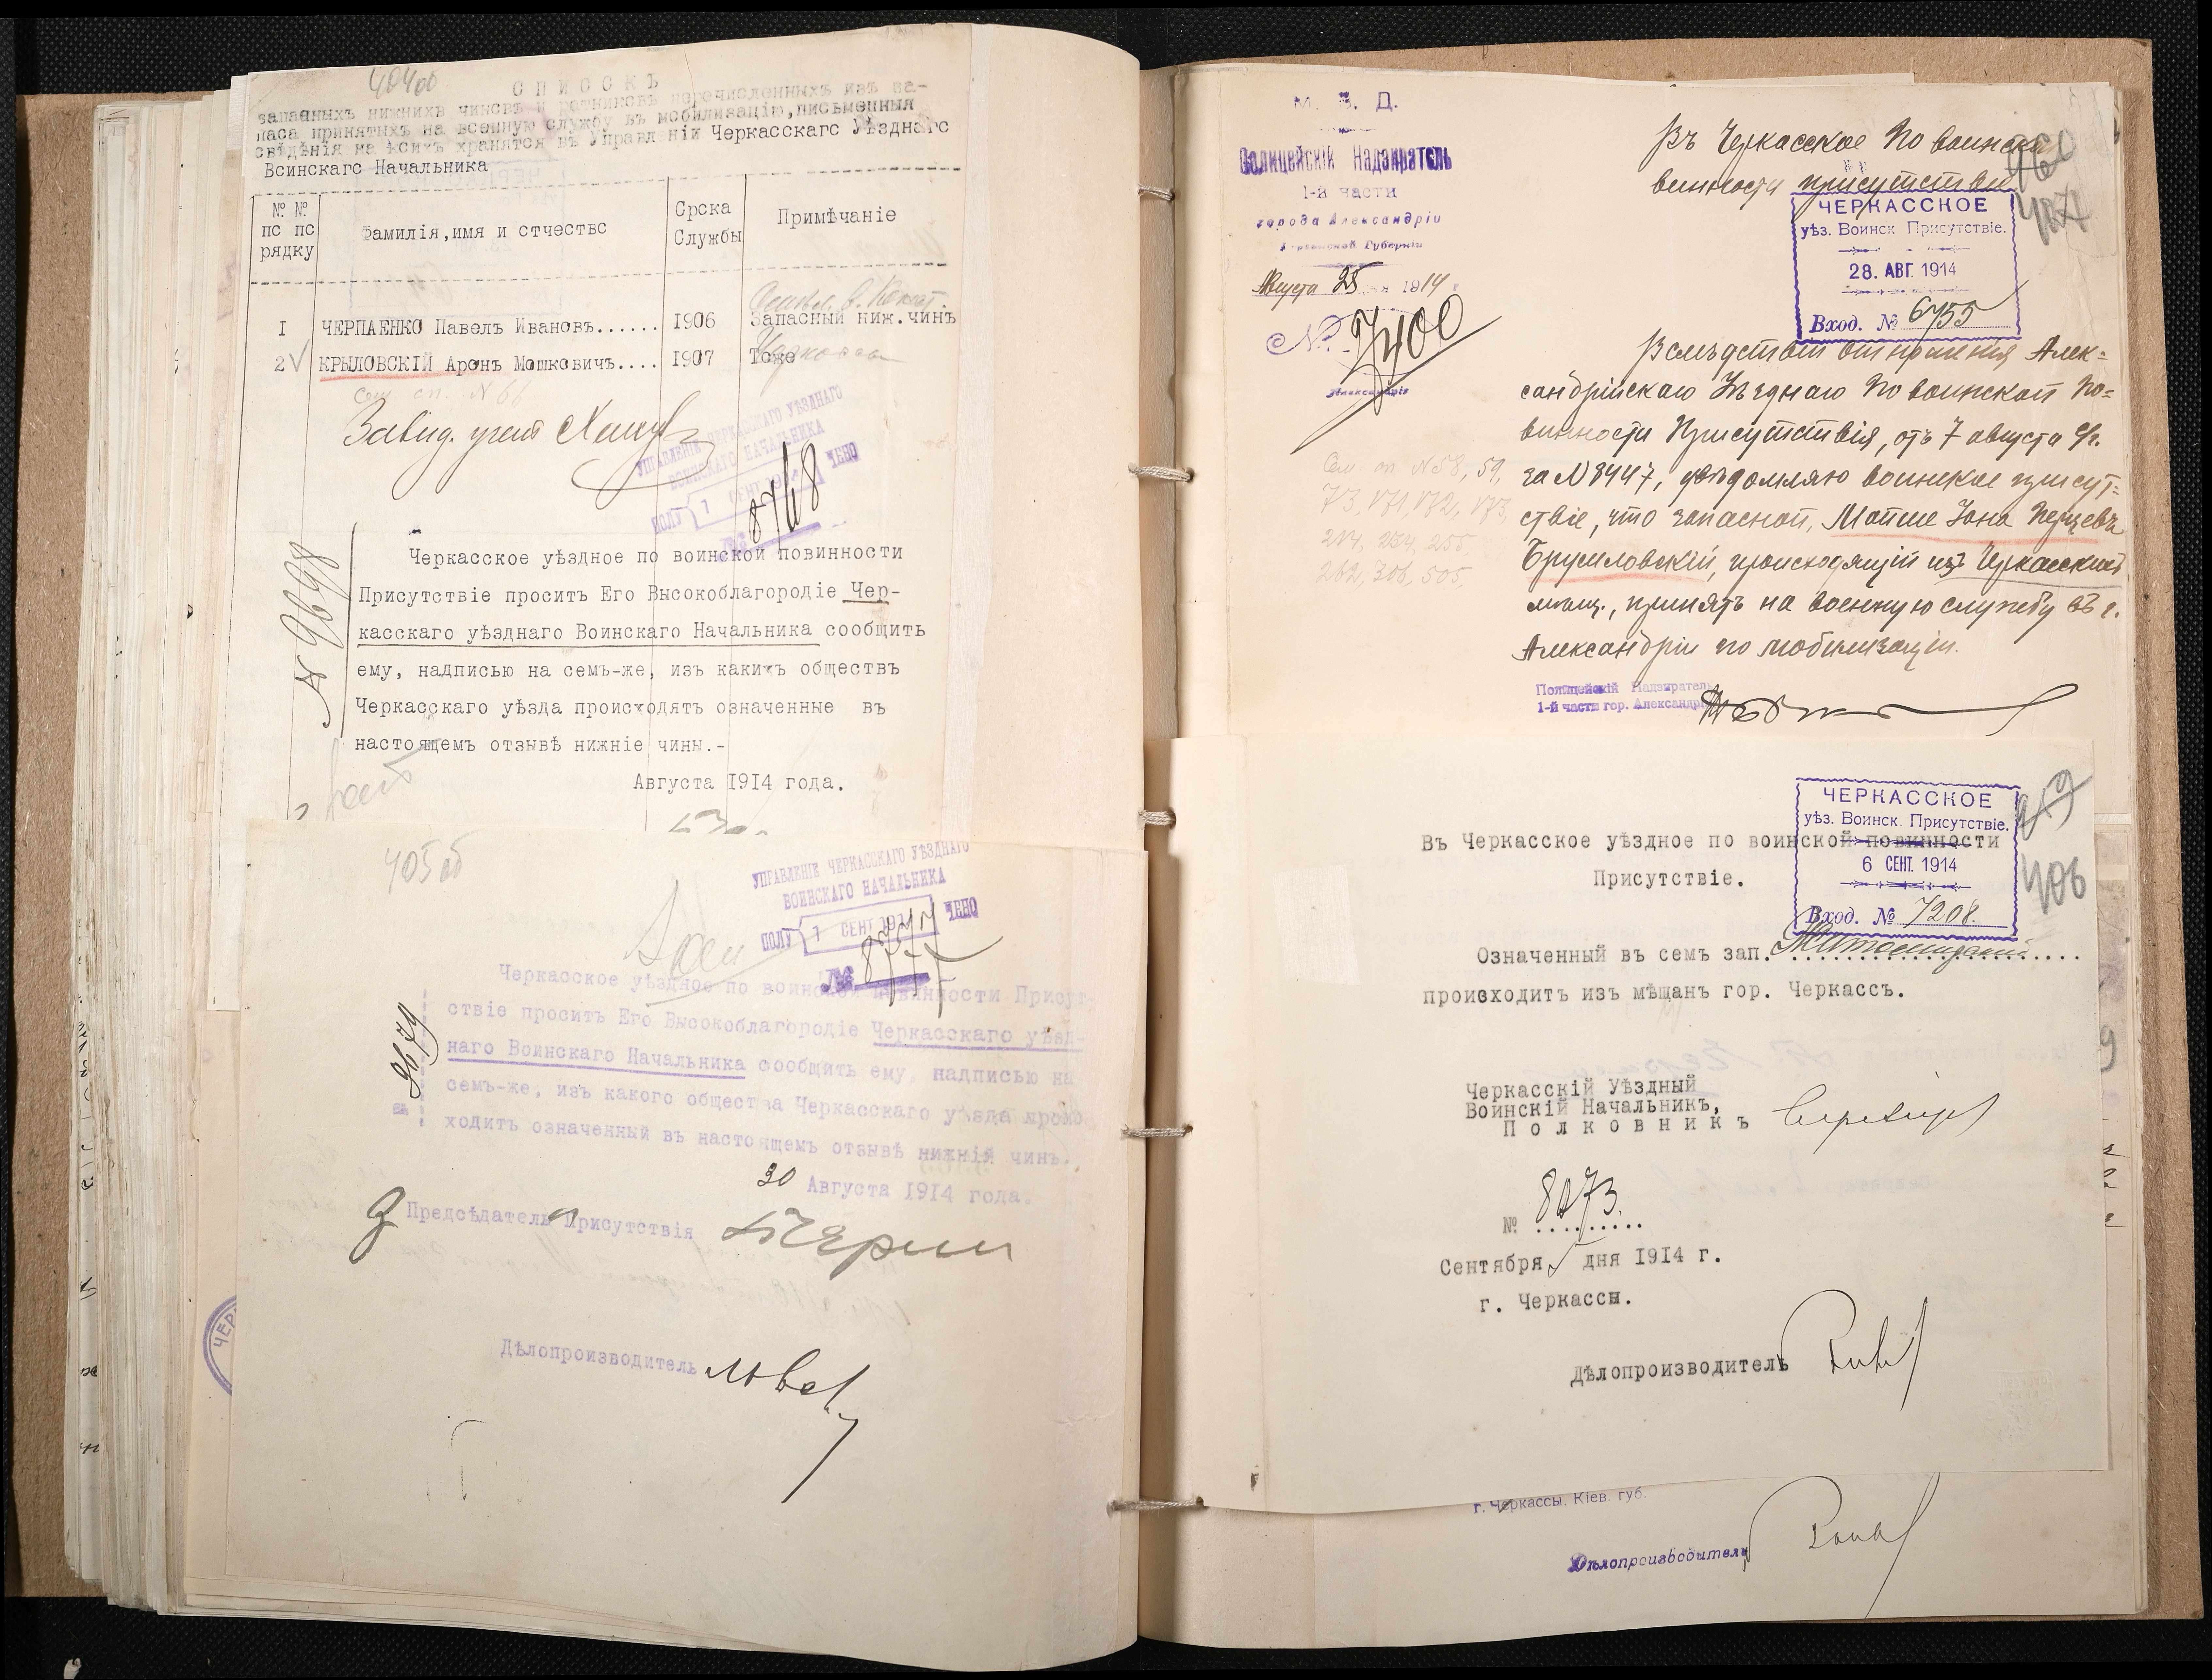 404об
СПИСОКЪ
запасныхъ нижнихъ чиновъ и ратниковъ перечисленныхъ изъ за-
паса принятыхъ на военную службу въ мобилизацію,письменныя
свѣдѣнія на коихъ хранятся въ Управленіи Черкасскаго Уѣзднаго
Воинскаго Начальника
№ № пс пс рядку
Фамилія,имя и стчествс
Срска Службы
Примѣчаніе
I ЧЕРПАЕНКО Павелъ Ивановъ...... I906 Запасный ниж.чинъ
2 КРЫЛОВСКІЙ Аронъ Мошковичъ.... I907 Тоже
Сем. сп. N 66
Завѣд. учет
УПРАВЛЕНІЕ ЧЕРКАССКАГО УѢЗДНАГО
ВОИНСКАГО НАЧАЛЬНИКА
ПОЛУ 1 СЕНТ 1914 ЧЕНО
8768
N 9698
Черкасское уѣздное по воинской повинности
Присутствіе проситъ Его Высокоблагородіе Чер-
касскаго уѣзднаго Воинскаго Начальника сообщить
ему, надписью на семъ-же, изъ какихъ обществъ
Черкасскаго уѣзда происходятъ означенные въ
настоящемъ отзывѣ нижніе чины.-
Августа I9I4 года.
405об
УПРАВЛЕНІЕ ЧЕРКАССКАГО УѢЗДНАГО
ВОИНСКАГО НАЧАЛЬНИКА
ПОЛУ 1 СЕНТ 1914 ЧЕНО
№ 8777
Черкасское уѣздное по воинской повинности Присут-
ствіе проситъ Его Высокоблагородіе Черкасскаго уѣзд-
наго Воинскаго Начальника сообщить ему, надписью на
семъ-же, изъ какого общества Черкасскаго уѣзда проис
ходитъ означенный въ настоящемъ отзывѣ нижній чинъ.
9679
30 Августа I9I4 года.
Предсѣдатель Присутствія
Дѣлопроизводитель
М. В. Д.
Полицейскій Надзиратель
1-й части
города Александріи
Херсонской Губерніи
Августа 25 дня 1914 г.
№ 7400
Александрія
Въ Черкасское По воинской
винности присутствіе
407
ЧЕРКАССКОЕ
уѣз. Воинск Присутствіе.
28. АВГ. 1914
Вход. № 6755
Вслѣдствіи отношенія Алек=
сандрійскаго Уѣзднаго По воинской По=
винности Присутствія, отъ 7 августа с/г.
за N 8447, увѣдомляю воинское присут=
ствіе, что запасной, Мойше Іона Перцевъ
Брусиловскій, происходящій изъ Черкасскихъ
мѣщ., принятъ на военную службу въ г.
Александріи по мобилизаціи.
Сем. сп. N 58, 59,
73, 171, 172, 173,
214, 264, 255,
262, 306, 505.
Полицейскій Надзиратель
1-й части гор. Александріи
ЧЕРКАССКОЕ
уѣз. Воинск. Присутствіе.
6 СЕНТ. 1914
Вход. № 7208.
406
Въ Черкасское уѣздное по воинской повинности
Присутствіе.
Означенный въ семъ зап.
происходитъ изъ мѣщанъ гор. Черкассъ.
Черкасскій Уѣздный
Воинскій Начальникъ,
Полковникъ
№ 8073.
Сентября 5 дня I9I4 г.
г. Черкассы.
Дѣлопроизводитель
г. Черкассы. Кіев. губ.
Дѣлопроизводитель